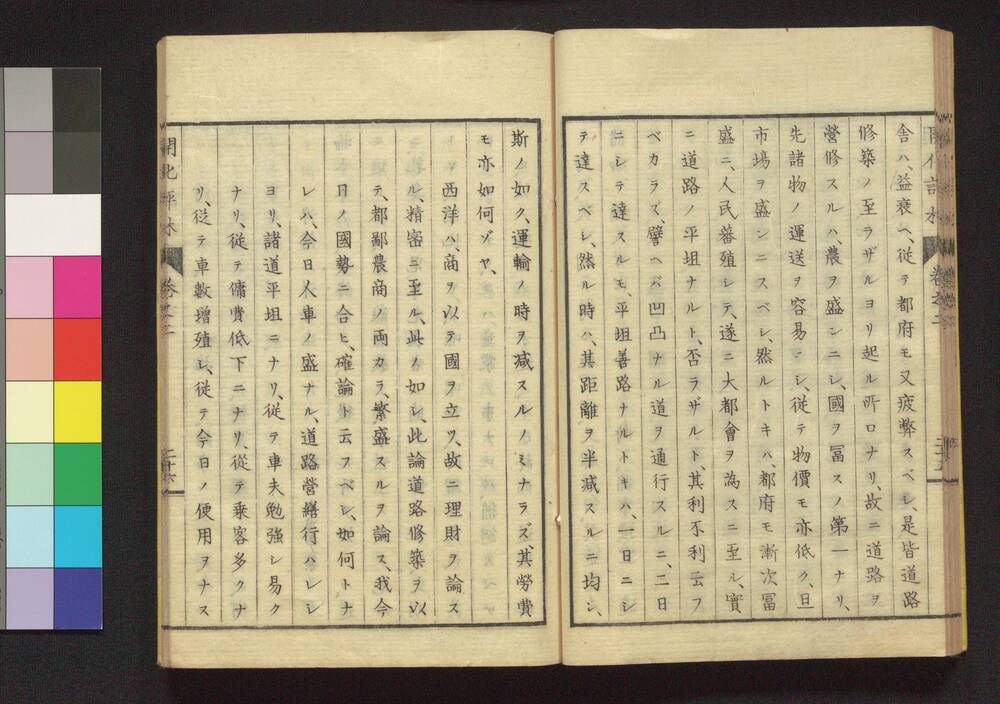 舎ハ、益衰ヘ、従テ都府モ又疲弊スベシ、是皆道路
修築ノ至ラザルヨリ起ル所ロナリ、故ニ道路ヲ
營修スルハ、農ヲ盛ンニシ、國ヲ冨スノ第一ナリ、
先諸物ノ運送ヲ容易ニシ、従テ物價モ亦低ク、且
市場ヲ盛ンニスベシ、然ルトキハ、都府モ漸次冨
盛ニ、人民蕃殖シテ、遂ニ大都會ヲ為スニ至ル、實
ニ道路ノ平坦ナルト、否ラザルト、其利不利云フ
ベカラズ、譬ヘバ凹凸ナル道ヲ通行スルニ、二日
ニシテ達スルモ、平坦善路ナルトキハ、一日ニシ
テ達スベシ、然ル時ハ、其距離ヲ半減スルニ均シ、
斯ノ如ク、運輸ノ時ヲ减スルノミナラズ、其勞費
モ亦如何ゾヤ、
西洋ハ、商ヲ以テ國ヲ立ツ、故ニ理財ヲ論ス
ル、精密ニ至ル、此ノ如シ、此論道路修築ヲ以
テ、都鄙農商ノ両カラ、繁盛スルヲ論ス、我今
日ノ國勢ニ合ヒ、確論ト云フベシ、如何トナ
レハ、今日人車ノ盛ナル、道路營繕行ハレシ
ヨリ、諸道平坦ニナリ、従テ車夫勉強シ易ク
ナリ、従テ傭賃低下ニナリ、従テ乗客多クナ
リ、従テ車數增殖シ、従テ今日ノ便用ヲナス
開化評林
巻之二
二十六